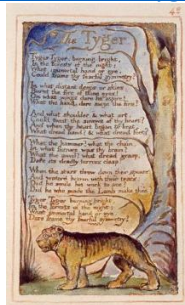 The Tyger
Tyger Tyger, burning bright,
In the forests of the night;
What immortal hand or eye,
Could frame thy fearful symmetry?
In what distant deeps or skies
Burnt the fire of thine eyes?
On what wings dare he aspire?
What the hand, dare sieze the fire?
And what shoulder, & what art,
Could twist the sinews of thy heart?
And when thy heart began to beat,
What dread hand? & what dread feet?
What the hammer? what the chain,
In what furnace was thy brain?
What the anvil? what dread grasp,
Dare its deadly terrors clasp
When the stars threw down their spears
And water'd heaven with their tears:
Did he smile his work to see?
Did he who made the Lamb make thee?
Tyger Tyger burning bright,
In the forests of the night:
What immortal hand or eye,
Dare frame thy fearful symmetry?